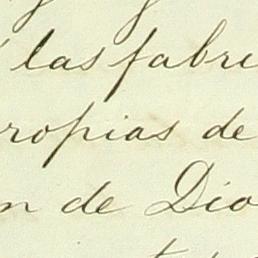 las fabri
ropias de
n de Dio